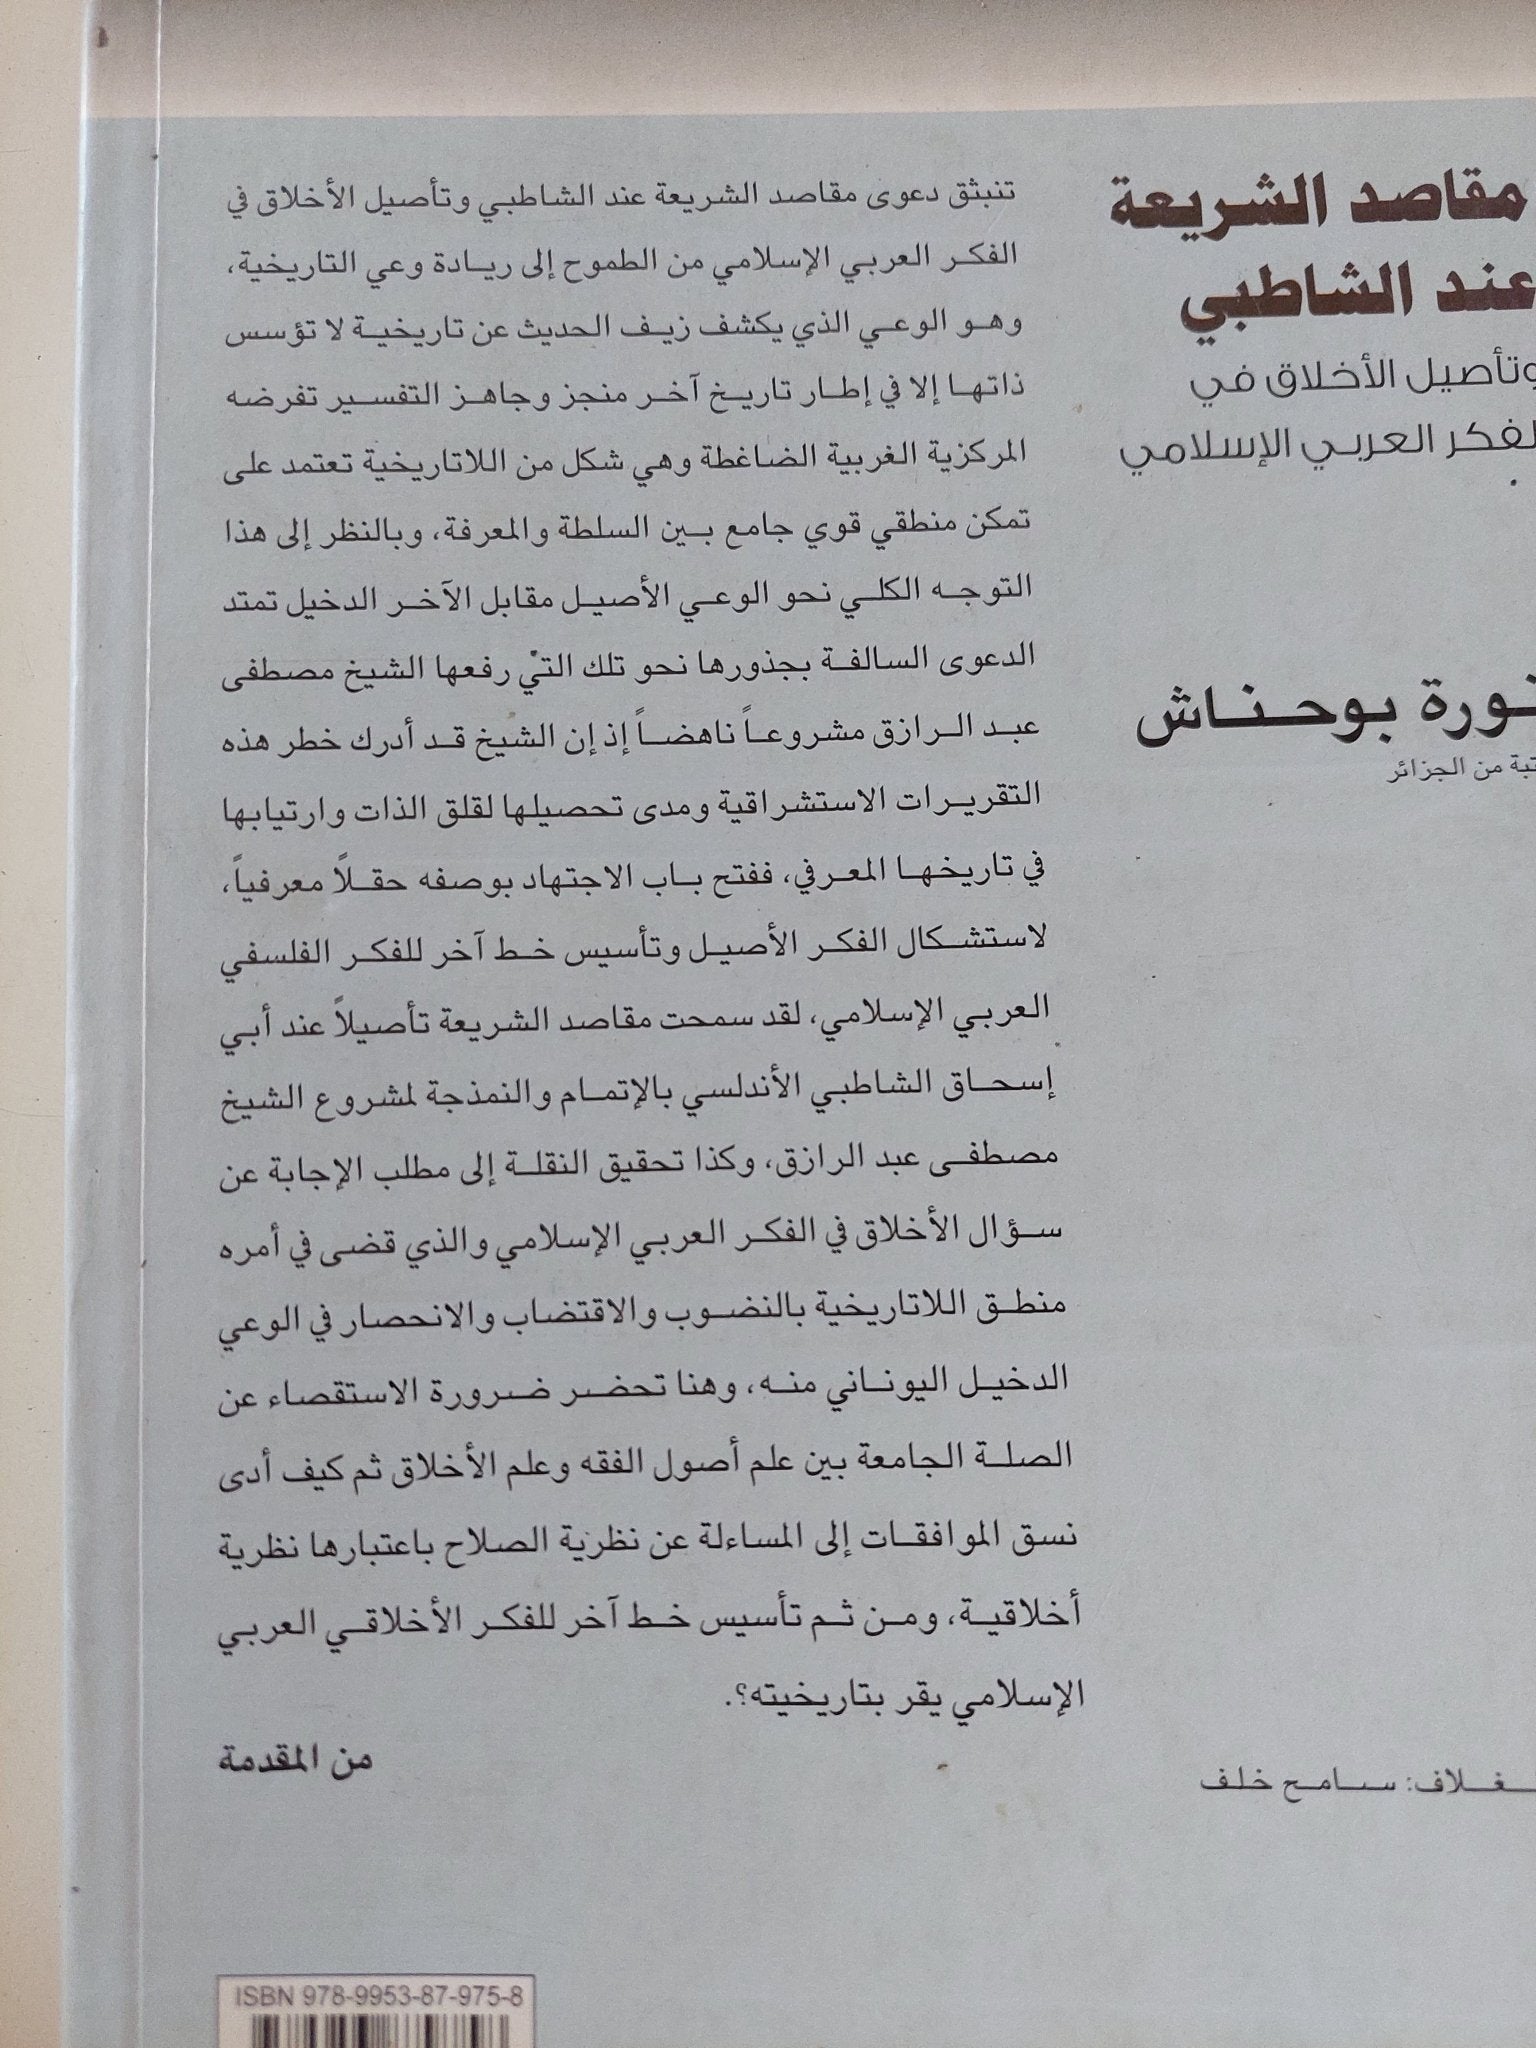 مقاصد الشريعة
عند الشاطبي
وتأصيل الأخلاق في
لفكر العربي الإسلامي
نورة بوحناش
تبة من الجزائر
تنبثق دعوى مقاصد الشريعة عند الشاطبي وتأصيل الأخلاق في
الفكر العربي الإسلامي من الطموح إلى ريادة وعي التاريخية،
وهو الوعي الذي يكشف زيف الحديث عن تاريخية لا تؤسس
ذاتها إلا في إطار تاريخ آخر منجز وجاهز التفسير تفرضه
المركزية الغربية الضاغطة وهي شكل من اللاتاريخية تعتمد على
تمكن منطقي قوي جامع بين السلطة والمعرفة، وبالنظر إلى هذا
التوجه الكلي نحو الوعي الأصيل مقابل الآخر الدخيل تمتد
الدعوى السالفة بجذورها نحو تلك التي رفعها الشيخ مصطفى
عبد الرازق مشروعاً ناهضاً إذ إن الشيخ قد أدرك خطر هذه
التقريرات الاستشراقية ومدى تحصيلها لقلق الذات وارتيابها
في تاريخها المعرفي، ففتح باب الاجتهاد بوصفه حقلاً معرفياً،
لاستشكال الفكر الأصيل وتأسيس خط آخر للفكر الفلسفي
العربي الإسلامي، لقد سمحت مقاصد الشريعة تأصيلاً عند أبي
إسحاق الشاطبي الأندلسي بالإتمام والنمذجة لمشروع الشيخ
مصطفى عبد الرازق، وكذا تحقيق النقلة إلى مطلب الإجابة عن
سؤال الأخلاق في الفكر العربي الإسلامي والذي قضى في أمره
منطق اللاتاريخية بالنضوب والاقتضاب والانحصار في الوعي
الدخيل اليوناني منه، وهنا تحضر ضرورة الاستقصاء عن
الصلة الجامعة بين علم أصول الفقه وعلم الأخلاق ثم كيف أدى
نسق الموافقات إلى المساءلة عن نظرية الصلاح باعتبارها نظرية
أخلاقية، ومن ثم تأسيس خط آخر للفكر الأخلاقي العربي
الإسلامي يقر بتاريخيته؟.
من المقدمة
غلاف: سامح خلف
ISBN 978-9953-87-975-8